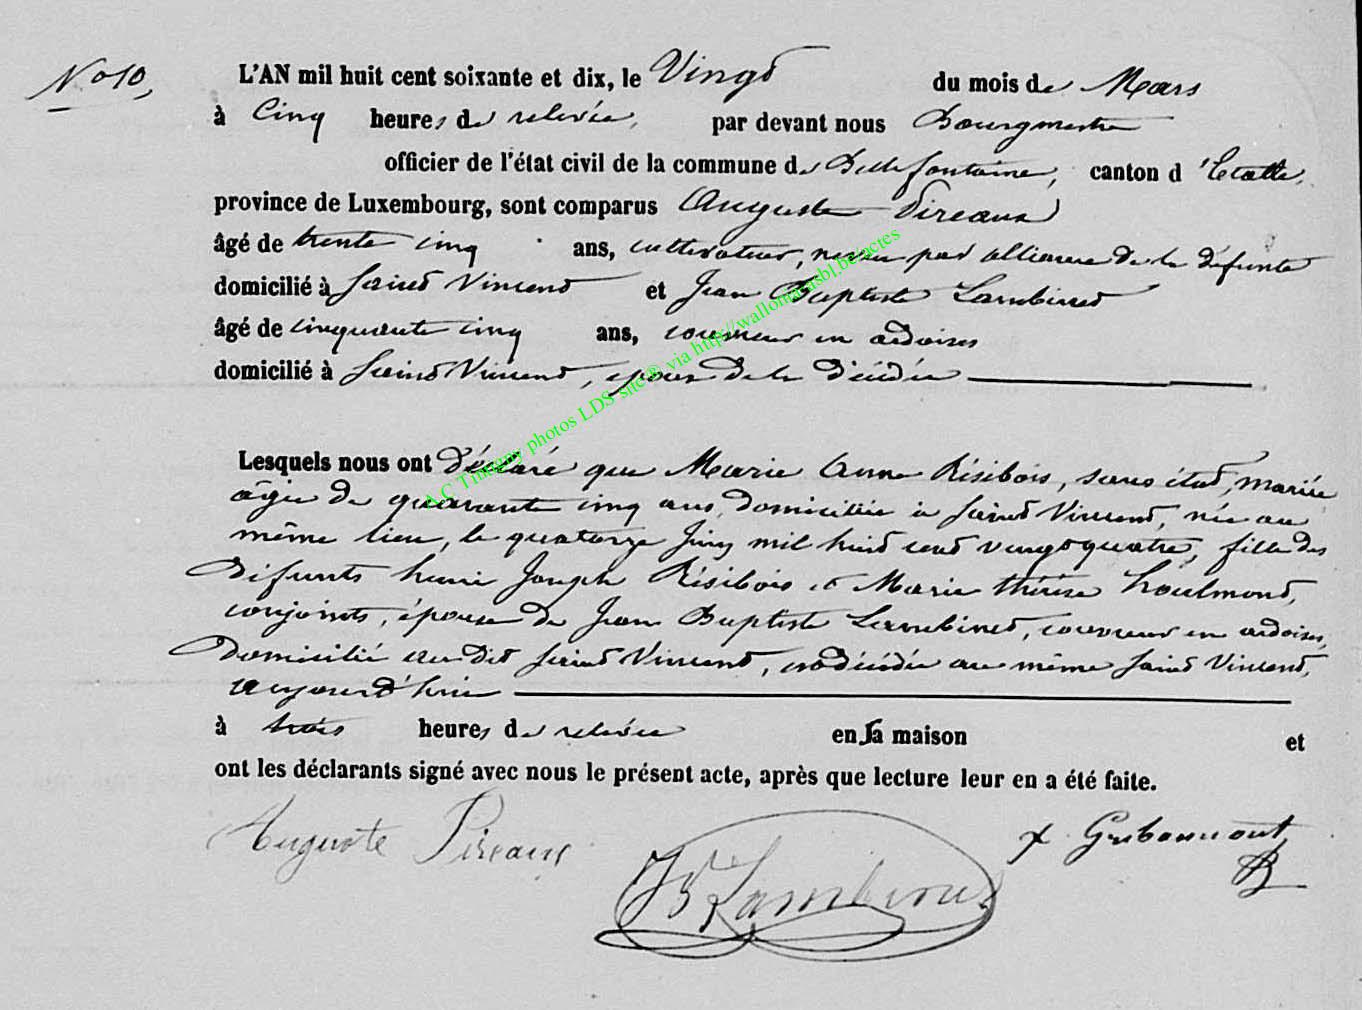 N° 10,
L'AN mil huit cent soixante et dix, le Vingt du mois de Mars
à Cinq heures de relevée, par devant nous Bourgmestre
officier de l'état civil de la commune de Bellefontaine, canton d'Etalle,
province de Luxembourg, sont comparus Auguste Pireaux
âgé de trente cinq ans, cultivateur, neveu par alliance de la défunte
domicilié à Saint Vincent et Jean Baptiste Lambinet
âgé de cinquante cinq ans, couvreur en ardoises
domicilié à Saint Vincent, époux de la décédée
Lesquels nous ont déclaré que Marie Anne Résibois, sans état, mariée
âgée de quarante cinq ans, domiciliée à Saint Vincent, née au
même lieu, le quatorze Juin mil huit cent vingt quatre, fille des
défunts henri Joseph Résibois et Marie thérèse houlmont,
conjoints, épouse de Jean Baptiste Lambinet, couvreur en ardoises,
domicilié au dit Saint Vincent, est décédée au même Saint Vincent,
aujourd'hui
à trois heures de relevée en sa maison et
ont les déclarants signé avec nous le présent acte, après que lecture leur en a été faite.
Auguste Pireaux
JB Lambinet
Gribaumont
A.C Tintigny photos LDS site® via http://wallonia.asbl.be/actes